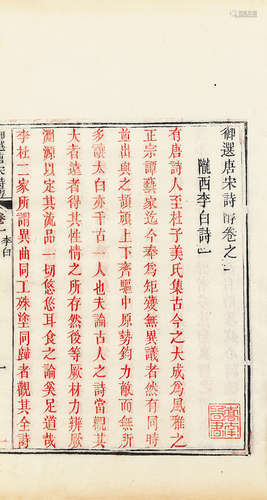 御選唐宋詩醇卷之一
隴西李白詩一
有唐詩人至杜子美氏集古今之大成為風雅之
正宗譚藝家迄今奉為矩矱無異議者然有同時
並出與之頡頏上下齊驅中原勢鈞力敵而無所
多讓太白亦千古一人也夫論古人之詩當觀其
大者遠者得其性情之所存然後等厥材力辨厥
淵源以定其流品一切悠悠耳食之論奚足道哉
李杜二家所謂異曲同工殊塗同歸者觀其全詩
御選唐宋詩醇
卷一
李白
一